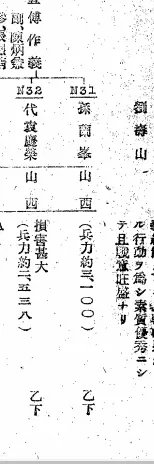 劉海山
ル行動ヲ爲シ素質優秀ニシ
テ且戰意旺盛ナリ
N31
孫蘭峯
山西
(兵力約三、一〇〇)
乙下
N32
代袁慶榮
山西
損害甚大
(兵力約二、五三八)
乙下
傅作義